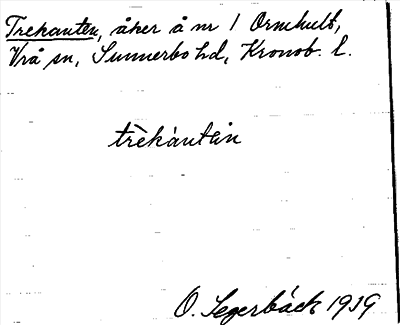 Trekanten, åker å nr 1 Ormhult,
Vrå sn, Sunnerbo hd, Kronob. l.
trè̀kántȧn
O. Segerbäck 1919